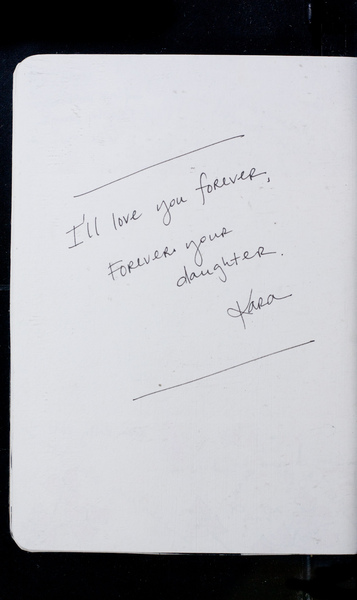 I'll love you forever,
Forever your
daughter.
Kara